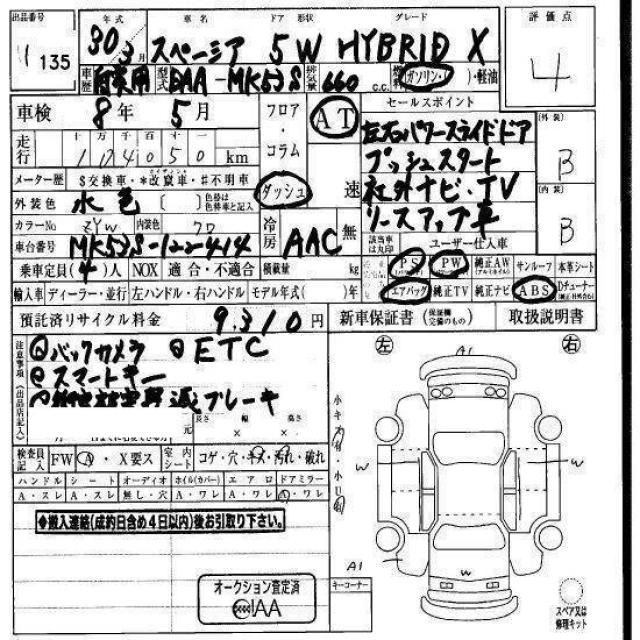 出品番号 年式 車名 ドア 形状 グレード 評価点
1135 30 3月 スペーシア 5W HYBRID X 4
車歴 自家用 型式 DAA-MK53S 排気量 660 c.c. 燃料 ガソリン・( )・軽油
車検 8年 5月 フロア・コラム・ダッシュ AT 速 セールスポイント
左右パワースライドドア
プッシュスタート
社外ナビ・TV
リースアップ車
外装 B
内装 B
走行 十万千百十一
104050 km
メーター歴 $交換車・*改竄車・#不明車
外装色 水色 ( )色替は色替車と記入
カラーNo ZYW 内装色 クロ 冷房 AAC 無
車台番号 MK53S-122414
該当車は丸印 ユーザー仕入車
乗車定員(4)人 NOX 適合・不適合 積載量 kg
PS PW 純正AW サンルーフ 本革シート
輸入車 ディーラー・並行 左ハンドル・右ハンドル モデル年式( )年
エアバッグ 純正TV 純正ナビ ABS Dチューナー
預託済リサイクル料金 9,310円 新車保証書 (保証欄完備のもの) 取扱説明書
注意事項(出品店記入)
バックカメラ ETC
スマートキー
減ブレーキ
長さ 幅 高さ
× ×
検査員記入 FW A・X要ス 室内シート コゲ・穴・キズ・汚れ・破れ
ハンドル シート オーディオ ホイル(カバー) エアロ ドアミラー
A・スレ A・スレ 無し・穴 A・ワレ A・ワレ A・ワレ
◆搬入連絡(成約日含め4日以内)後お引取り下さい。
オークション査定済
CIAA
左 右
A1
W W
W
A1
キーコーナー
スペア又は
修理キット